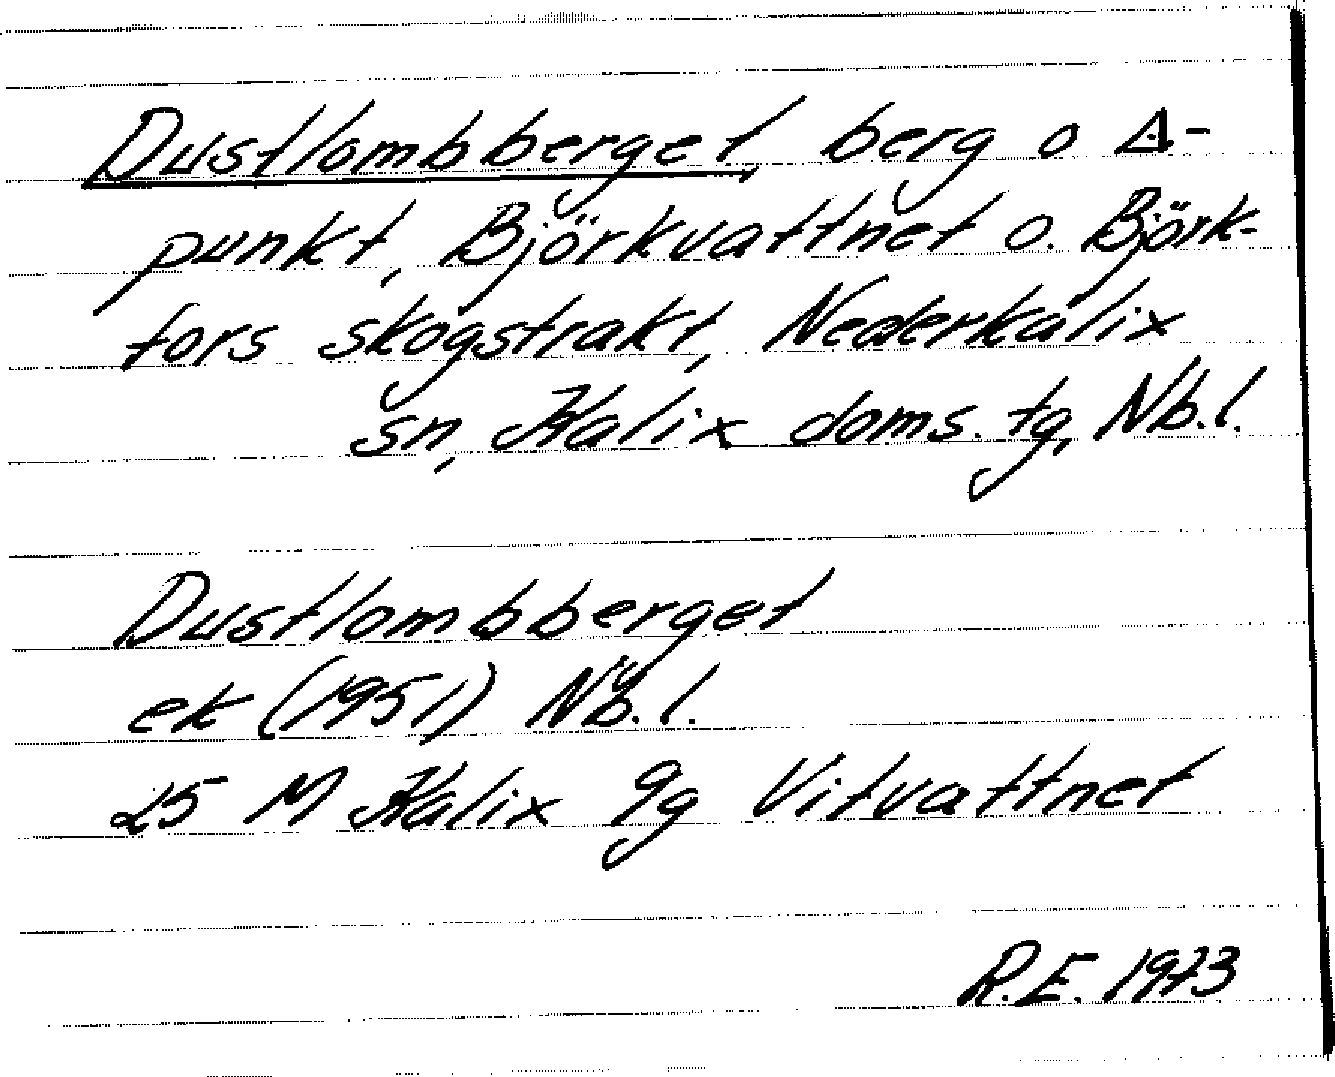 Dustlombberget, berg o ∆-
punkt, Björkvattnet o. Björk-
fors skogstrakt, Nederkalix
sn, Kalix doms. tg, Nb.l.
Dustlombberget
ek (1951) Nb.l.
25 M Kalix 9g Vitvattnet
R.E. 1973